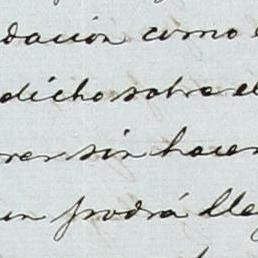 dación como
dicho sobre el
rer sin hacer
un podrá lle